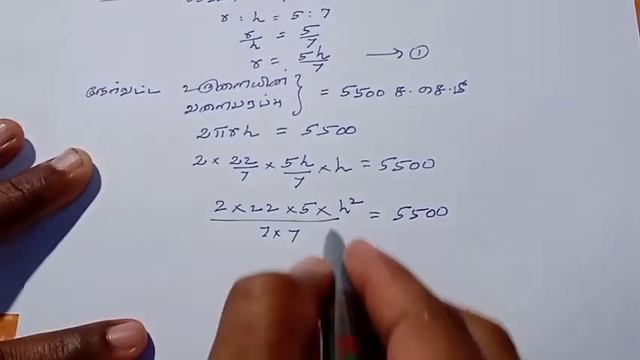 r : h = 5 : 7
r/h = 5/7
r = 5h/7 → ①
நேர்வட்ட உருளையின் வளைபரப்பு } = 5500 ச.செ.மீ
2πrh = 5500
2 × 22/7 × 5h/7 × h = 5500
2 × 22 × 5 × h² / 7 × 7 = 5500